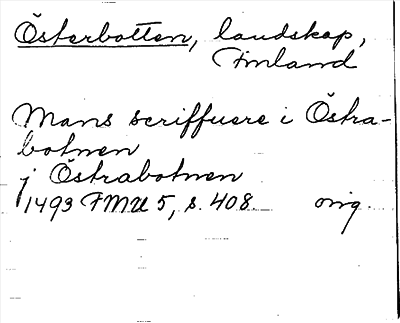 Österbotten, landskap,
Finland
Mans scriffuere i Östra-
botnen
j Östrabotnen
1493 FMU 5, s. 408. orig.